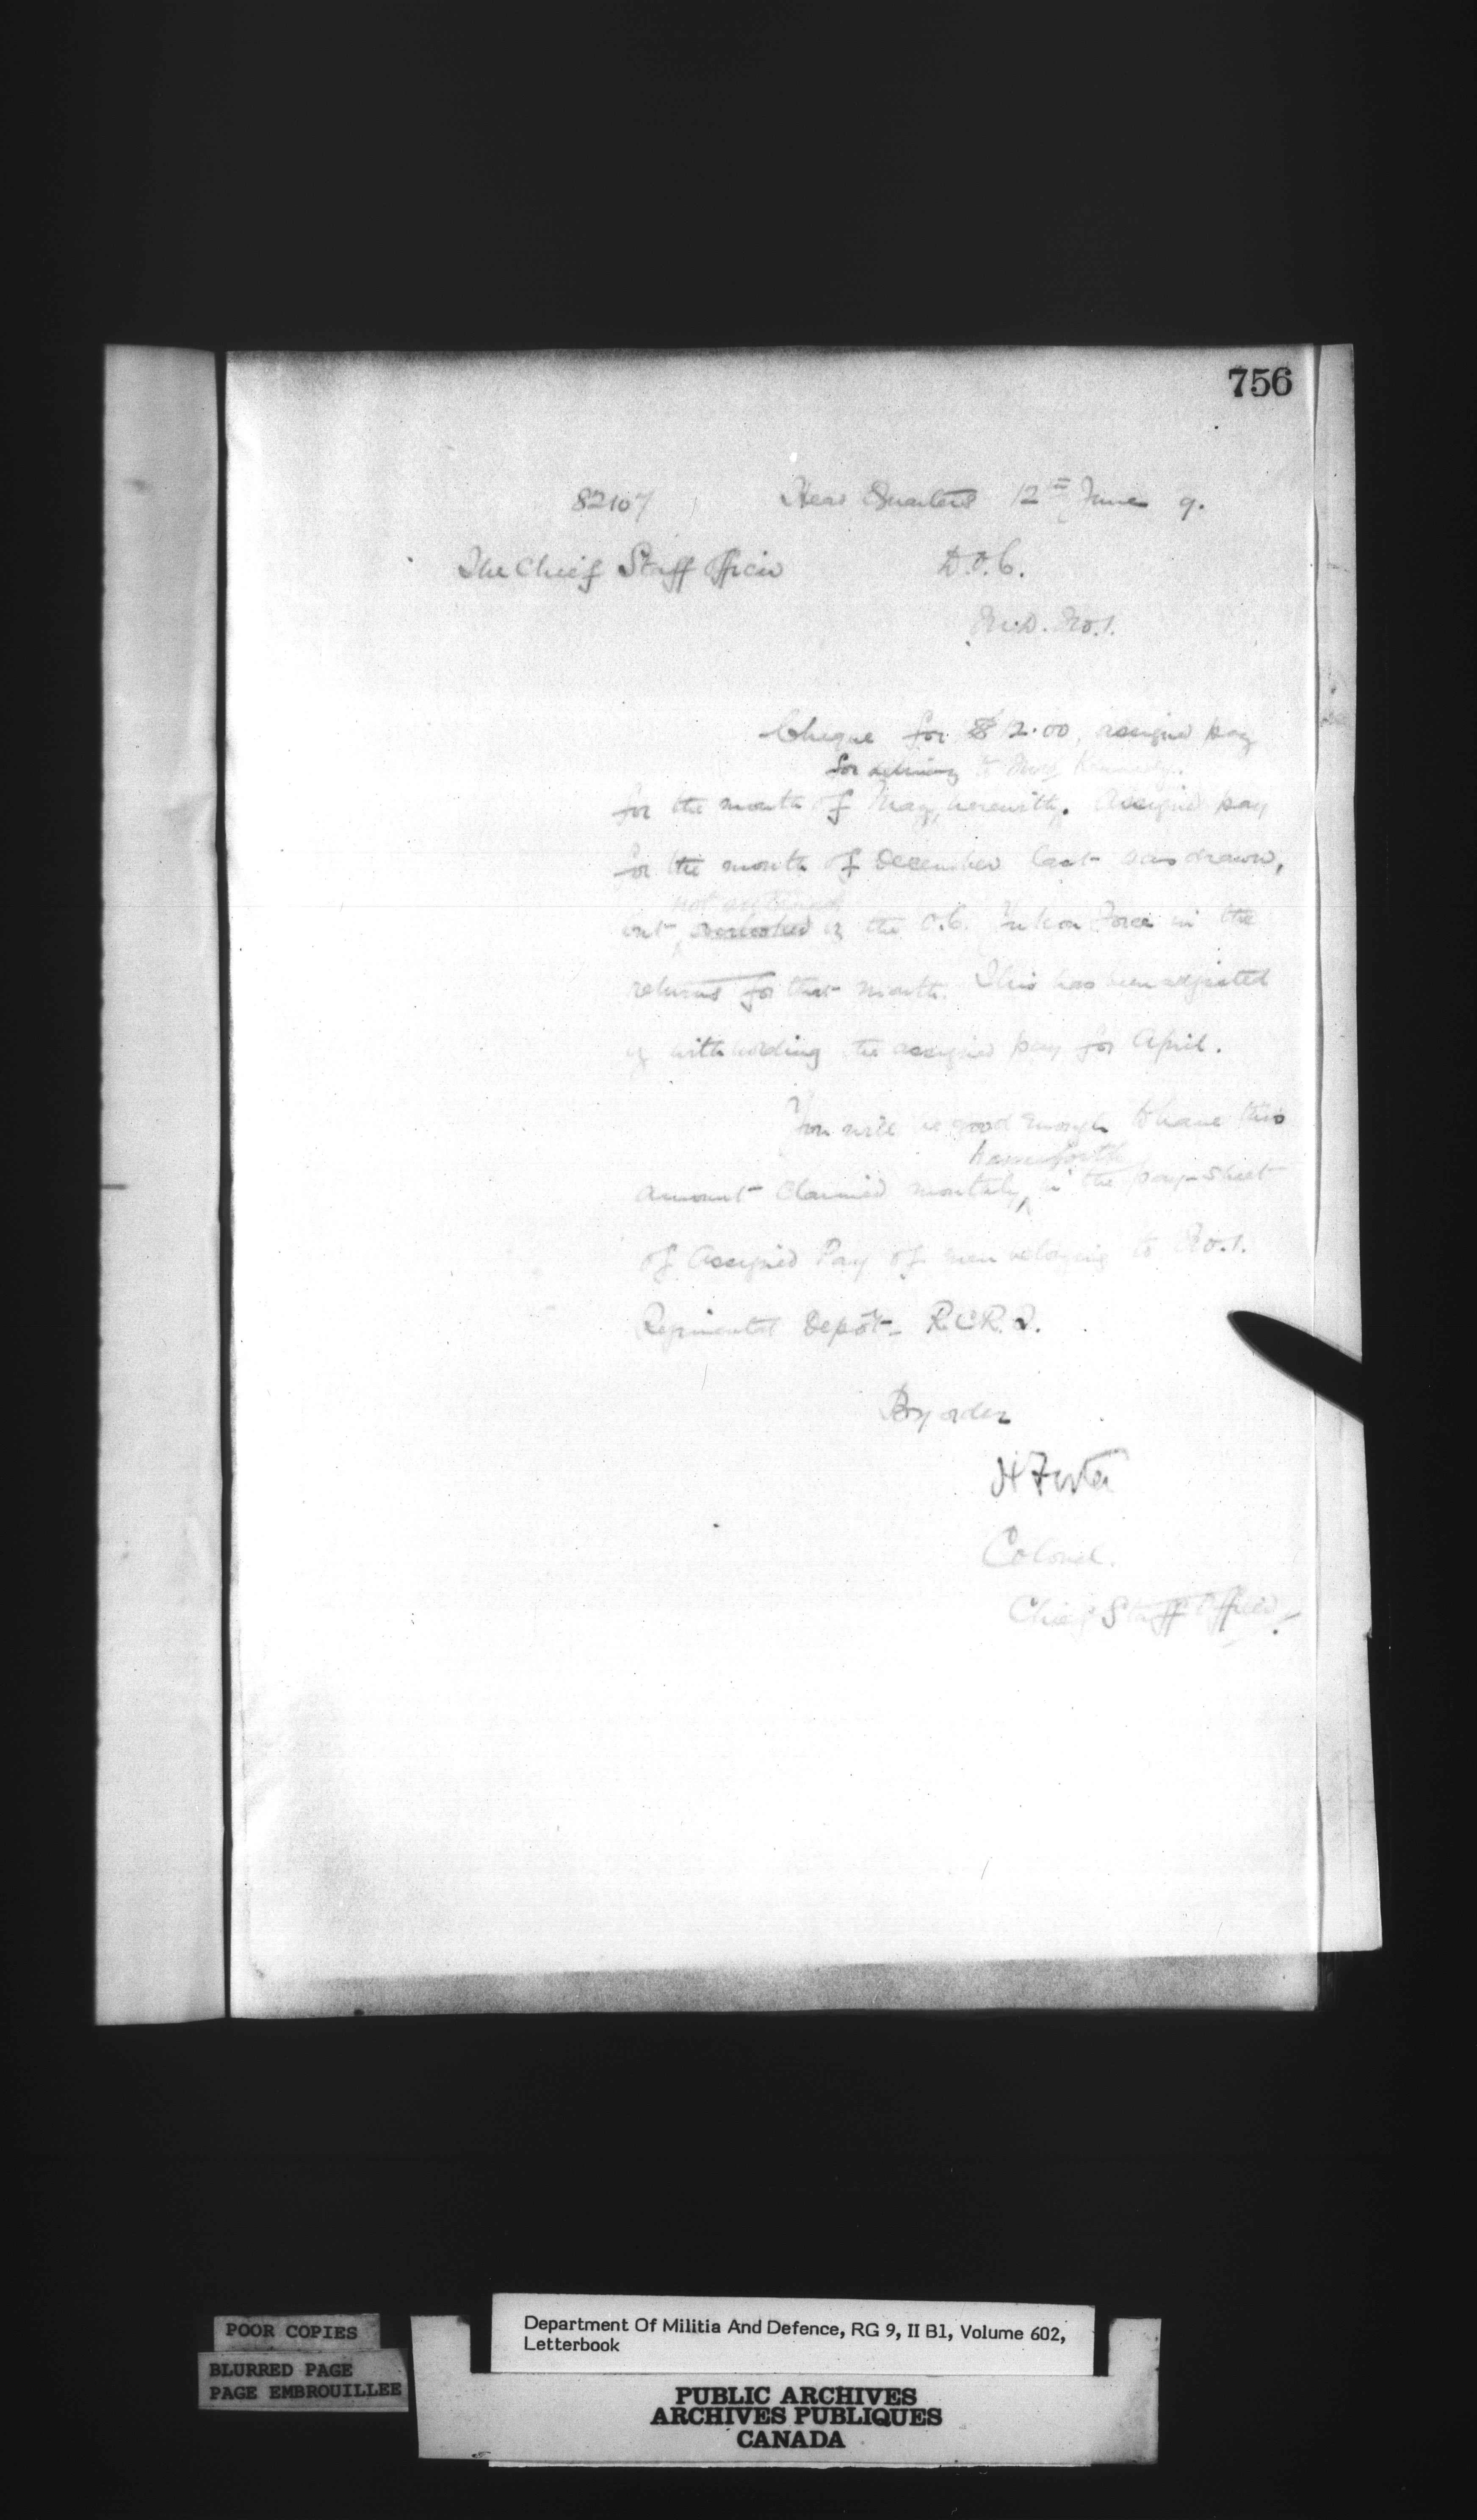 756
82107 Head Quarters 12th June 9.
The Chief Staff Officer D.O.C.
M.D. No. 1.
Cheque for $ 2.00, assigned pay
for delivery to Mrs Kennedy.
for the month of May, herewith. Assigned pay
for the month of December last was drawn,
not
but overlooked by the O.C. Yukon Force in the
returns for that month. This has been adjusted
by withholding the assigned pay for April.
You will be good enough to have this
henceforth
amount claimed monthly, in the pay-sheet
of Assigned Pay of men belonging to No. 1.
Regimental Depôt - R.C.R.I.
By order
H Foster
Colonel.
Chief Staff Officer.
POOR COPIES
BLURRED PAGE
PAGE EMBROUILLEE
Department Of Militia And Defence, RG 9, II B1, Volume 602,
Letterbook
PUBLIC ARCHIVES
ARCHIVES PUBLIQUES
CANADA